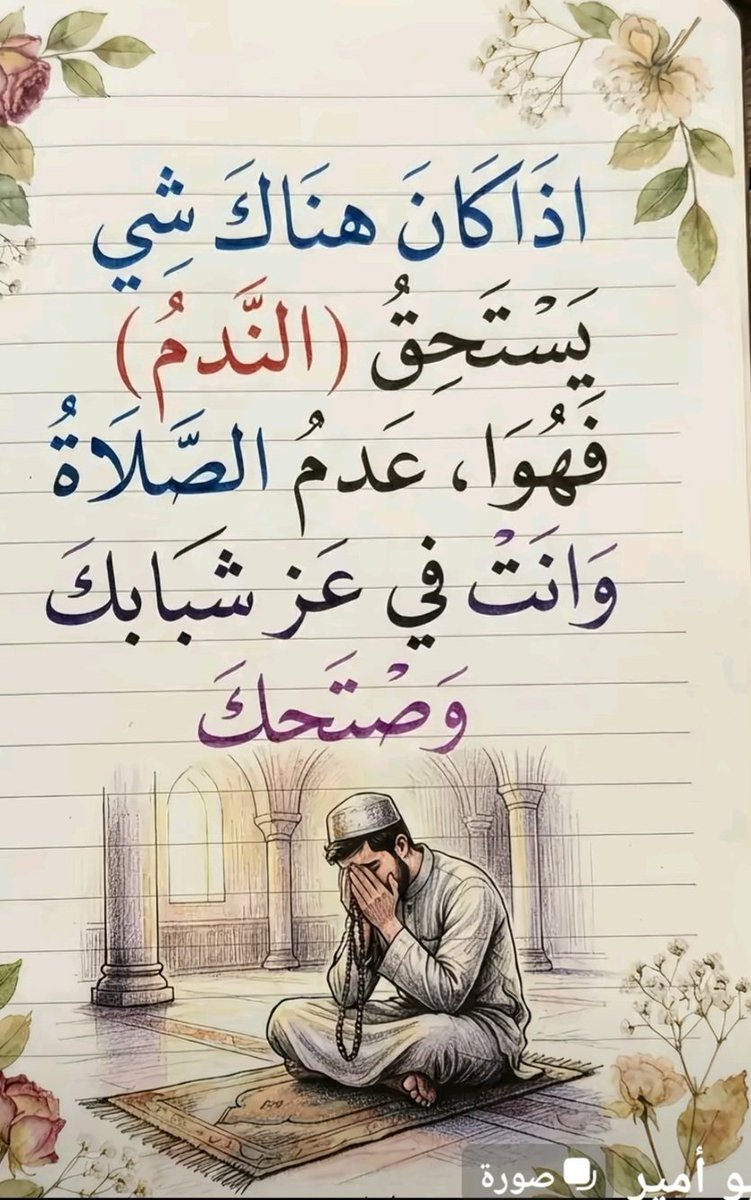 اذَاكَانَ هنَاكَ شِي
يَسْتَحِقُ (النَّدمُ)
فَهُوَا، عَدمُ الصَّلَاةُ
وَانَتْ في عَز شبَابكَ
وَصْتَحكَ
و أمير
صورة